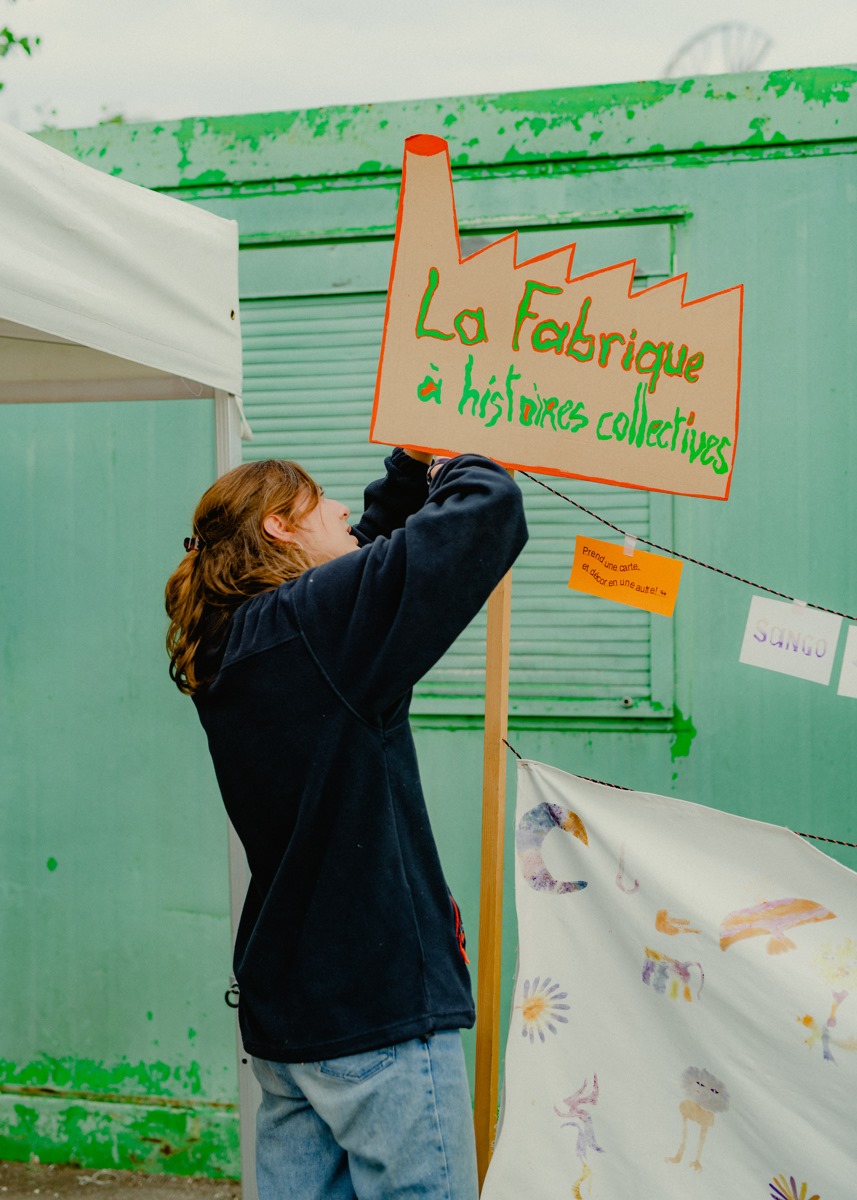 La Fabrique
à histoires collectives
Prend une carte,
et décor en une autre!
SANGO